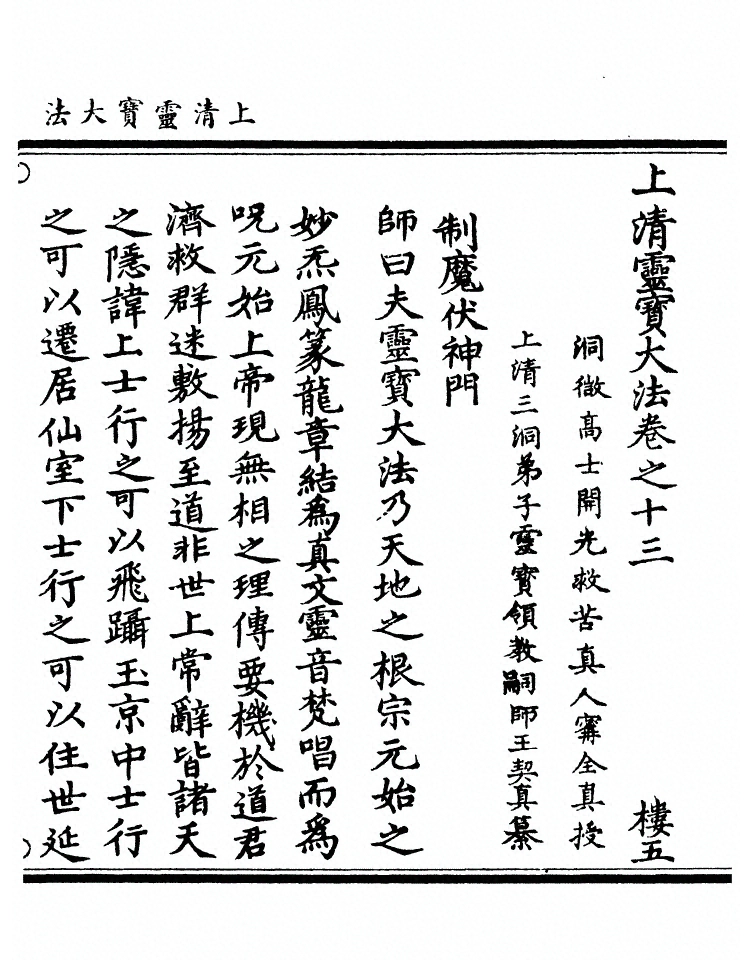 上清靈寶大法
上清靈寶大法卷之十三 樓五
洞微高士開光救苦真人甯全真授
上清三洞弟子靈寶領教嗣師王契真纂
制魔伏神門
師曰夫靈寶大法乃天地之根宗元始之
妙炁鳳篆龍章結為真文靈音梵唱而為
呪元始上帝現無相之理傳要機於道君
濟救群迷敷揚至道非世上常辭皆諸天
之隱諱上士行之可以飛躡玉京中士行
之可以遷居仙室下士行之可以住世延